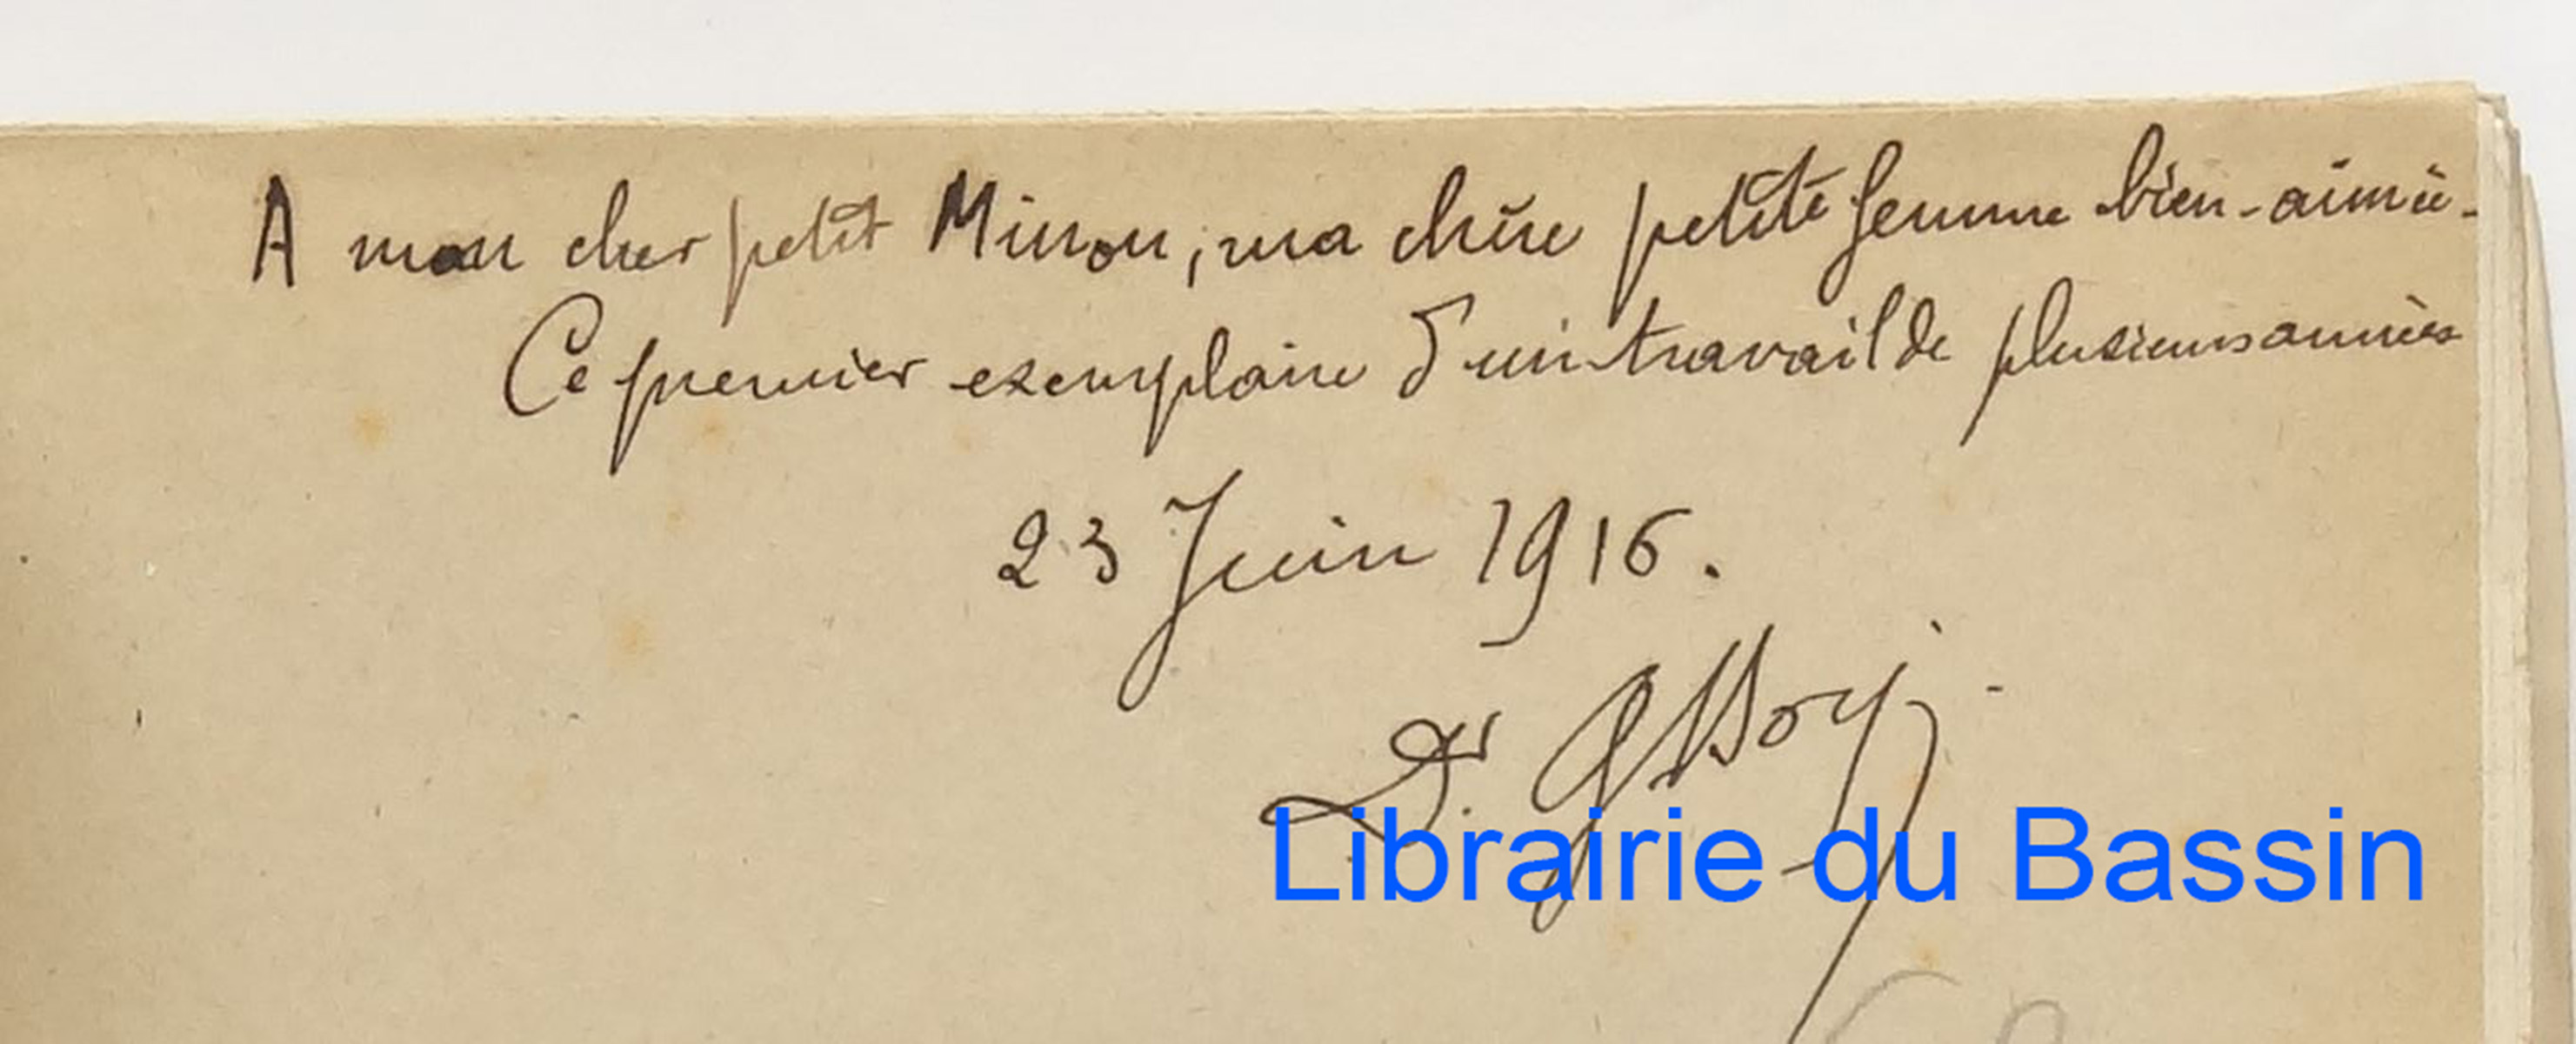 A mon cher petit Minon, ma chère petite femme bien-aimée.
Ce premier exemplaire d'un travail de plusieurs années
23 Juin 1916.
Dr.
Librairie du Bassin